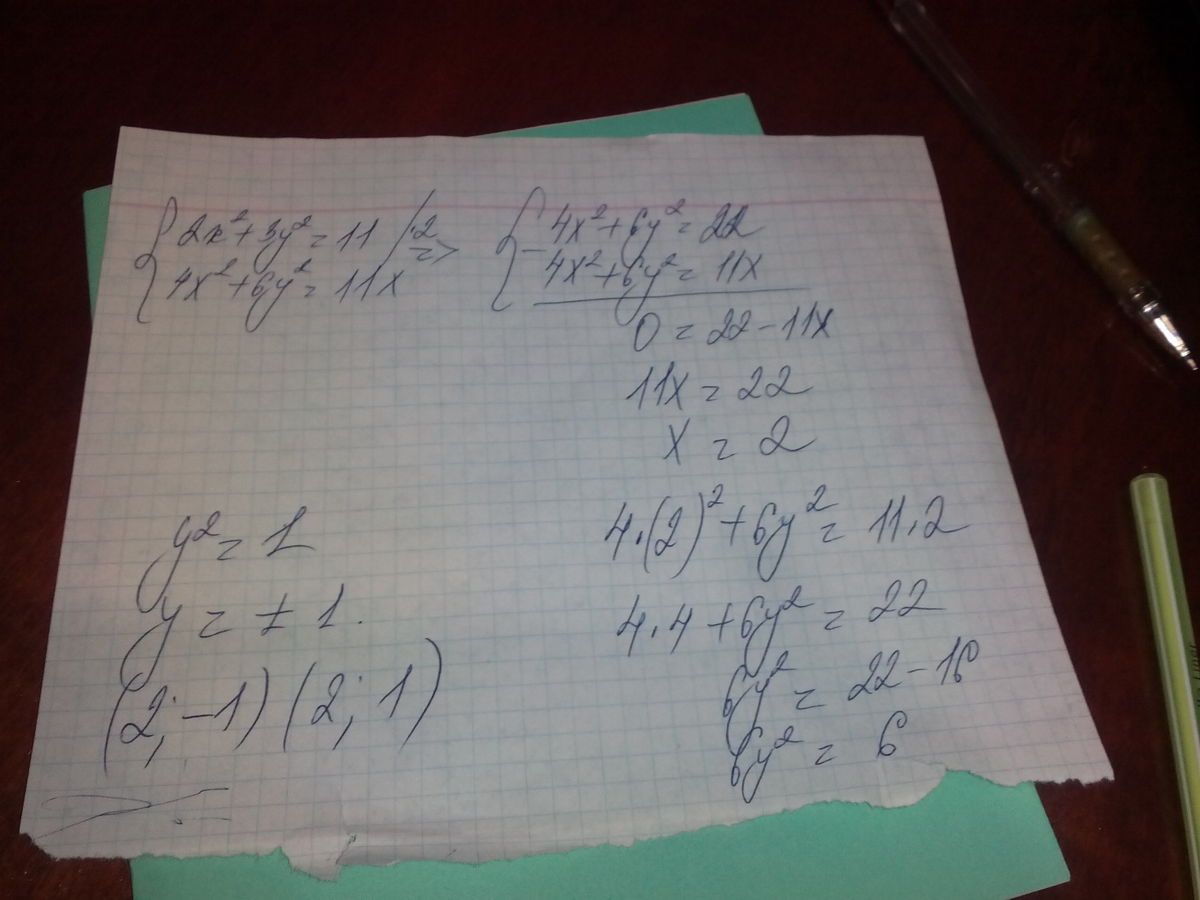 { 2x² + 3y² = 11 / ·2
4x² + 6y² = 11x =>
{ 4x² + 6y² = 22
− 4x² + 6y² = 11x
0 = 22 − 11x
11x = 22
x = 2
4·(2)² + 6y² = 11·2
4·4 + 6y² = 22
6y² = 22 − 16
6y² = 6
y² = 1
y = ±1.
(2; −1) (2; 1)